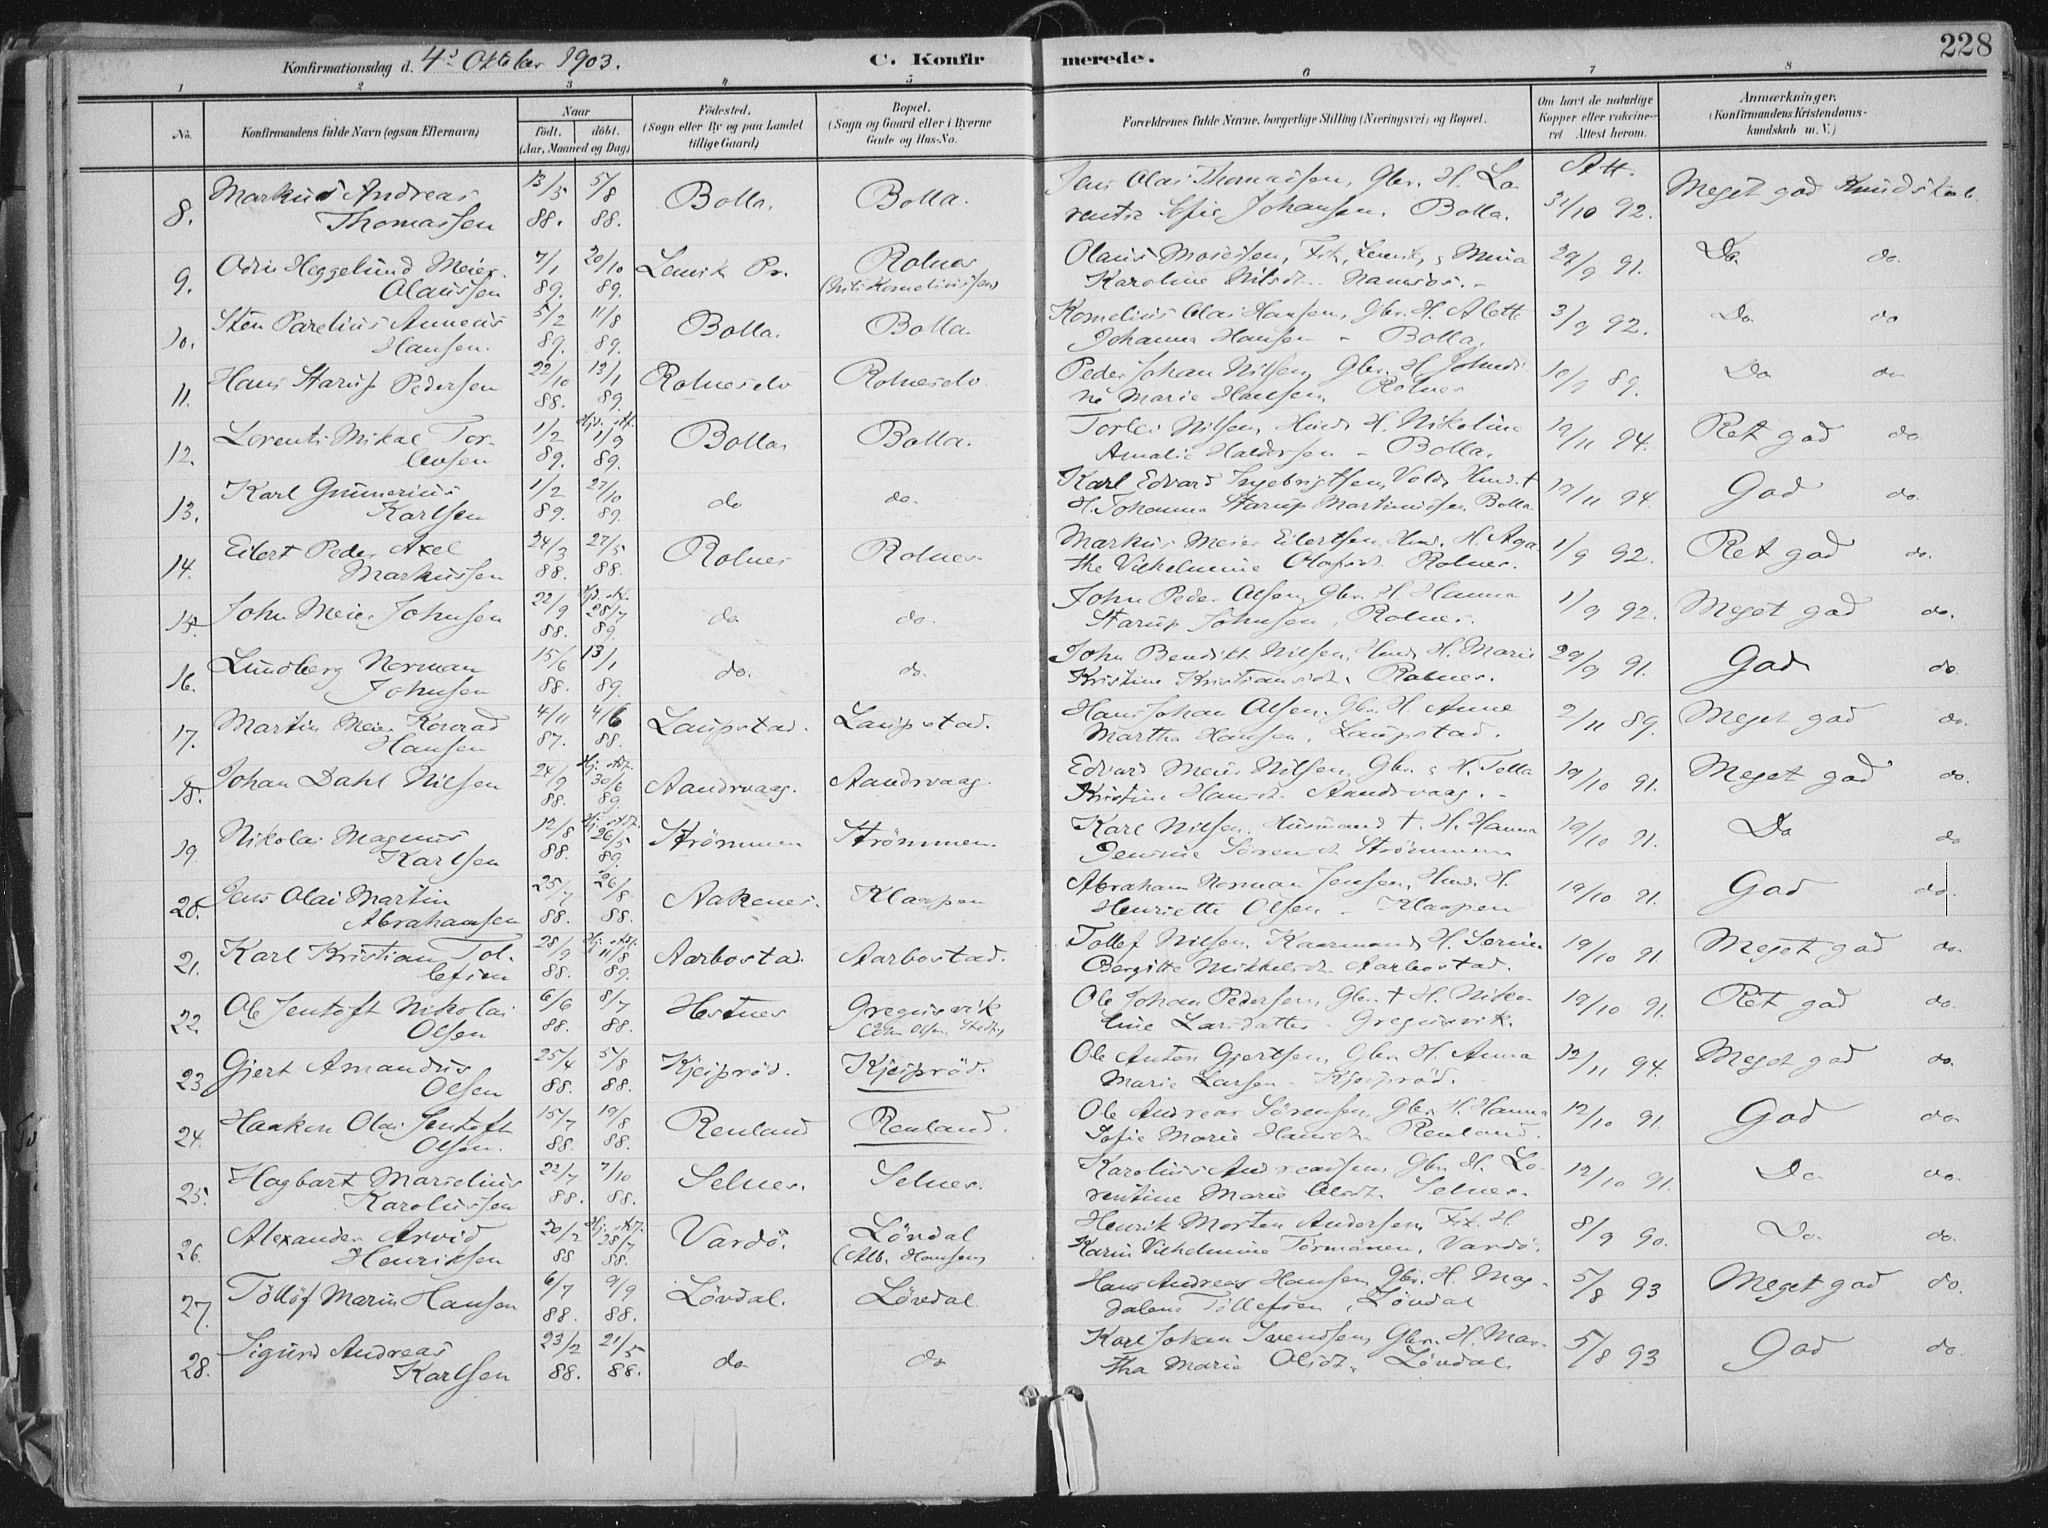 228
Konfirmationsdag d. 4de Oktober 1903. C. Konfirmerede.
1 2 3 4 5 6 7 8
No. Konfirmandens fulde Navn (ogsaa Efternavn) Naar födt. döbt. (Aar, Maaned og Dag) Födested. (Sogn eller By og paa Landet tillige Gaard) Bopæl. (Sogn og Gaard eller i Byerne Gade og Hus-No. Forældrenes fulde Navne, borgerlige Stilling (Næringsvei) og Bopæl. Om havt de naturlige Kopper eller vakcineret Attest herom. Anmærkninger. (Konfirmandens Kristendomskundskab m. V.)
8. Markus Andreas Thomassen 13/5 88. 5/8 88. Bolla. Bolla. Jens Olai Thomassen, Gbr. H. Lorentze Sofie Johansen. Bolla. Att. 31/10 92. Meget god Kundskab.
9. Odin Heggelund Meier Olaussen 7/1 89. 20/10 89. Lenvik Pr. Rolnes Olaus Mosessen, Lenvik, & Mina Karoline Nilsdt. Namsos. 29/9 91. Do. do.
10. Sten Parelius Anneus Hansen. 5/2 89. 11/8 89. Bolla. Bolla. Kornelius Olai Hansen, Gbr. H. Alette Johanna Hansen - Bolla. 3/9 92. Do. do
11. Hans Starup Pedersen 22/10 88. 13/1 89. Rolneselv Rolneselv. Peder Johan Nilsen Gbr. H. Johndine Marie Hansen, Rolnes 10/9 89. Do do
12. Lorents Mikal Torleivsen 1/2 89. Hj. dbt. 1/9 89. Bolla. Bolla. Torlei Nilsen, Husm. H. Nikoline Amalie Haldorsen - Bolla. 19/11 94. Ret god do
13. Karl Gunnerius Karlsen 1/2 89. 27/10 89. do do. Karl Edvard Ingebrigtsen, Hmd. † H. Johanna Starup Martinussen Bolla 19/11 94. God do.
14. Eilert Peder Axel Markussen 24/3 88. 27/5 88. Rolnes Rolnes. Markus Meier Eilertsen, Hmd. H. Agathe Vilhelmine Olafsdt. Rolnes. 1/9 92. Ret god do.
15. John Meier Johnsen 22/9 88. Hj. dbt. 28/7 89. do do. John Peder Olsen, Gbr. H. Hanna Starup Johnsen, Rolnes. 1/9 92. Meget god do.
16. Lundberg Norman Johnsen 15/6 88. 13/1 89. do. do. John Bendikt Nilsen, Hmd. H. Marie Kristine Kristiansdt. Rolnes. 29/9 91. God do.
17. Martin Meier Konrad Hansen 4/11 87. 4/6 88. Laupstad. Laupstad. Hans Johan Olsen, Gbr. H. Anne Martha Hansen. Laupstad. 2/11 89. Meget god do.
18. Johan Dahl Nilsen 24/9 88. Hj. dbt. 30/6 89. Aandsvaag. Aandsvaag. Edvard Meier Nilsen, Gbr. & H. Kristine Hansdt. Aandsvaag. - 19/10 91. Meget god do.
19. Nikolai Magnus Karlsen 12/8 88. Hj. dbt. 26/5 89. Strömmen Strömmen. Karl Nilsen. Husmand †. H. Hanna Sörensdt. Strömmen 19/10 91. Do do
20. Jens Olai Martin Abrahamsen 25/7 88. 26/8. 88. Aakenes. Klaapen Abraham Norman Jensen, Hmd. H. Henriette Olsen - Klaapen 19/10 91. God do.
21. Karl Kristian Tollefsen 28/9 88. Hj. dbt. 11/8 89. Aarbostad. Aarbostad. Tollef Nilsen, Kaarmand, H. Serine Bergitte Mikkelsdt. Aarbostad. 19/10 91. Meget god do.
22. Ole Jentoft Nikolai Olsen 6/6 88. 8/7 88. Hestnes Gregusvik Ole Johan Pedersen, Gbr. † H. Nikoline Larsdatter - Gregusvik. 19/10 91. Ret god do.
23. Gjert Amandus Olsen 25/4 88. 5/8 88. Kjeipröd. Kjeipröd. Ole Anton Gjertsen, Gbr. H. Anna Marie Larsen - Kjeipröd. 12/11 94. Meget god do.
24. Haakon Olai Jentoft Olsen. 15/7 88. 19/8 88. Renland Renland. Ole Andreas Sörensen Gbr. H. Hanna Sofie Marie Hansdt. Renland. 12/10 91. God do.
25. Hagbart Marselius Karolussen 22/7 88. 7/10 88. Selnes. Selnes. Karolius Andreassen, Gbr. H. Lorentine Marie Olsdt. Selnes. 12/10 91. Do. do.
26. Alexander Arvid Henriksen 20/2 88 Hj. dbt. 28/7 88. Vardö. Lövdal (Alb. Hansen) Henrik Morten Andersen, H. Karin Vilhelmine Törmänen, Vardö. 8/9 90. Do. do.
27. Töllöf Marin Hansen 6/7 88. 9/9 88. Lövdal. Lövdal Hans Andreas Hansen, Gbr. H. Magdalena Töllefsen, Lövdal 5/8 93 Meget god do.
28. Sigurd Andreas Karlsen 23/2 88. 21/5 88. do do Karl Johan Svendsen, Gbr. H. Martha Marie Olsdt. Lövdal. 5/8 93 God do.